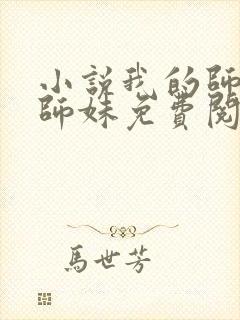 小說我的師
師妹免費閱
馬世芳